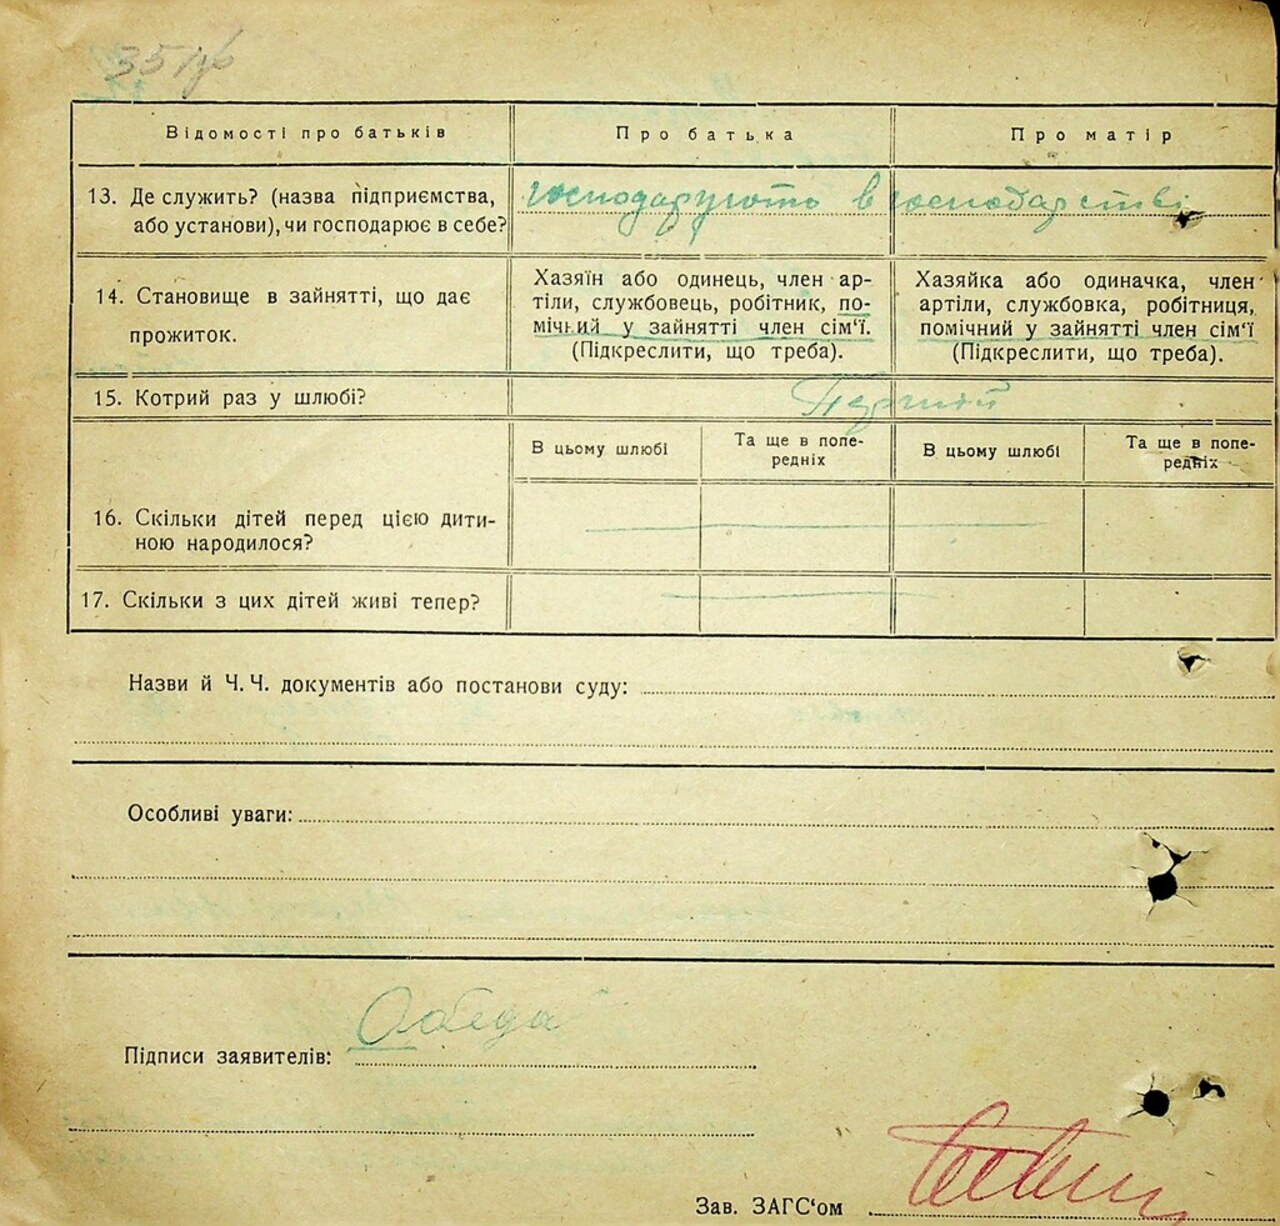 Відомості про батьків
Про батька
Про матір
13. Де служить? (назва підприємства,
або установи), чи господарює в себе?
господарують в господарстві
14. Становище в зайнятті, що дає
прожиток.
Хазяїн або одинець, член ар-
тіли, службовець, робітник, по-
мічний у зайнятті член сім‘ї.
(Підкреслити, що треба).
Хазяйка або одиначка, член
артіли, службовка, робітниця,
помічний у зайнятті член сім‘ї
(Підкреслити, що треба).
15. Котрий раз у шлюбі?
Перший
В цьому шлюбі
Та ще в попе-
редніх
В цьому шлюбі
Та ще в попе-
редніх
16. Скільки дітей перед цією дити-
ною народилося?
17. Скільки з цих дітей живі тепер?
Назви й Ч. Ч. документів або постанови суду:
Особливі уваги:
Підписи заявителів:
Зав. ЗАГС‘ом